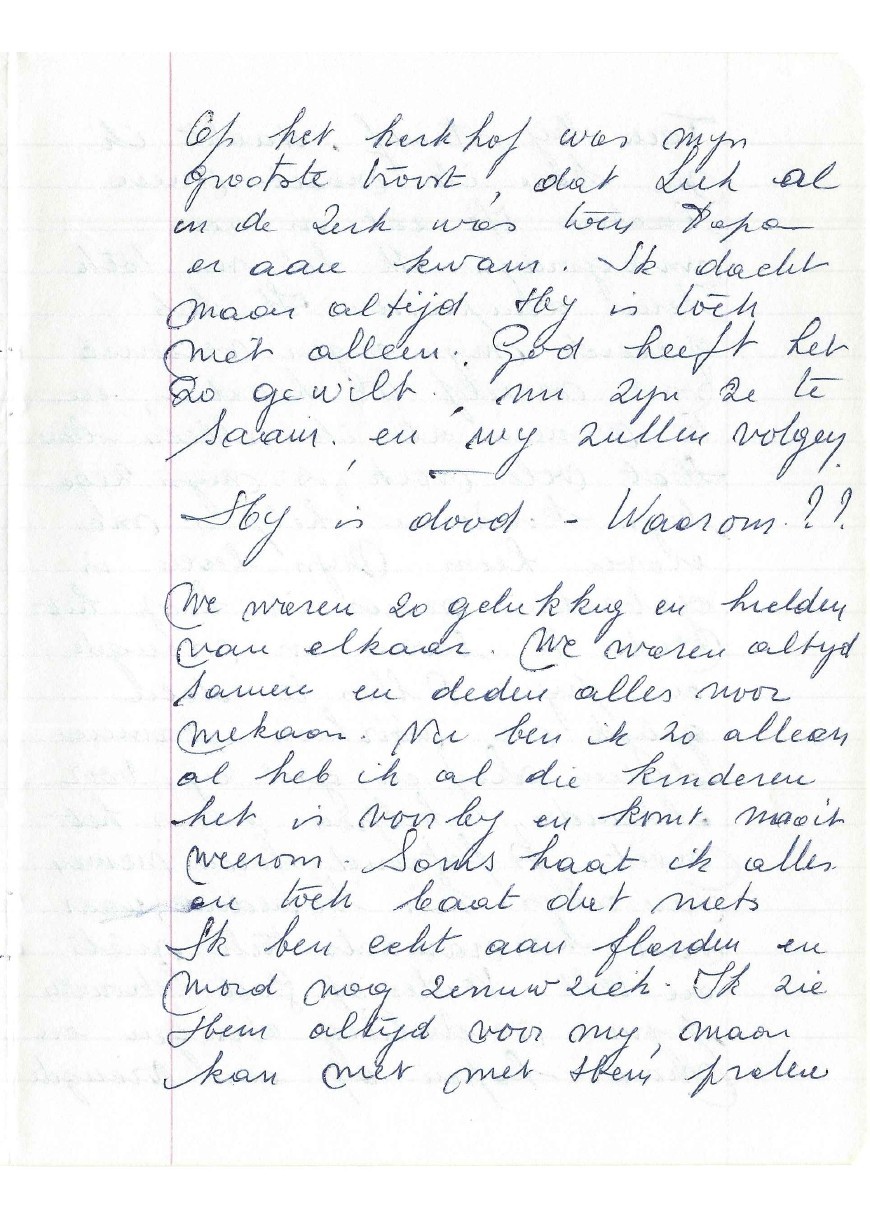 Op het kerkhof was myn
grootste troost, dat Luk al
in de Zerk was toen Papa
er aan kwam. Ik dacht
maar altijd Hy is toch
niet alleen. God heeft het
zo gewilt, nu zyn ze te
saam, en wy zullen volgen
Hy is dood - Waarom ??
We waren zo gelukkig en hielden
van elkaar. We waren altyd
samen en deden alles voor
mekaar. Nu ben ik zo alleen
al heb ik al die kinderen
het is voorby en komt nooit
weerom. Soms haat ik alles
en toch baat dat niets
Ik ben echt aan flarden en
word nog zenuwziek. Ik zie
Hem altyd voor my, maar
kan niet met Hem praten